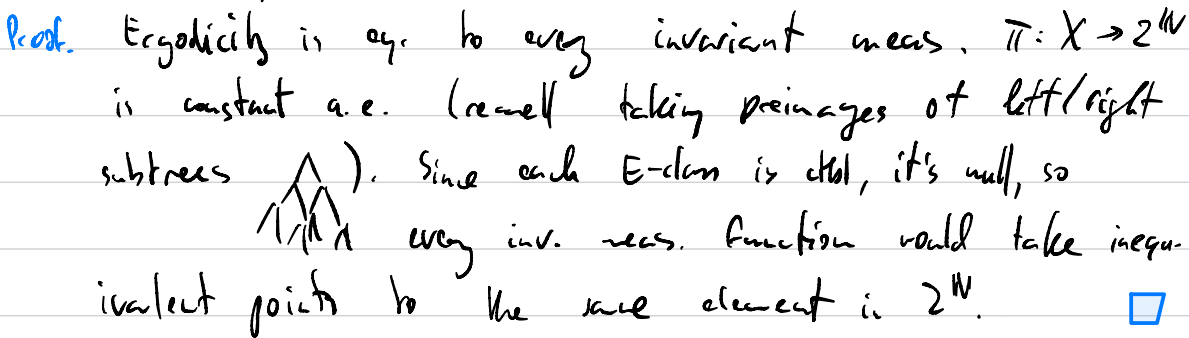 Proof. Ergodicity is eq. to every invariant meas. π: X → 2^ℕ
is constant a.e. (recall taking preimages of left/right
subtrees ). Since each E-class is ctbl, it's null, so
every inv. meas. function would take inequ-
ivalent points to the same element in 2^ℕ.